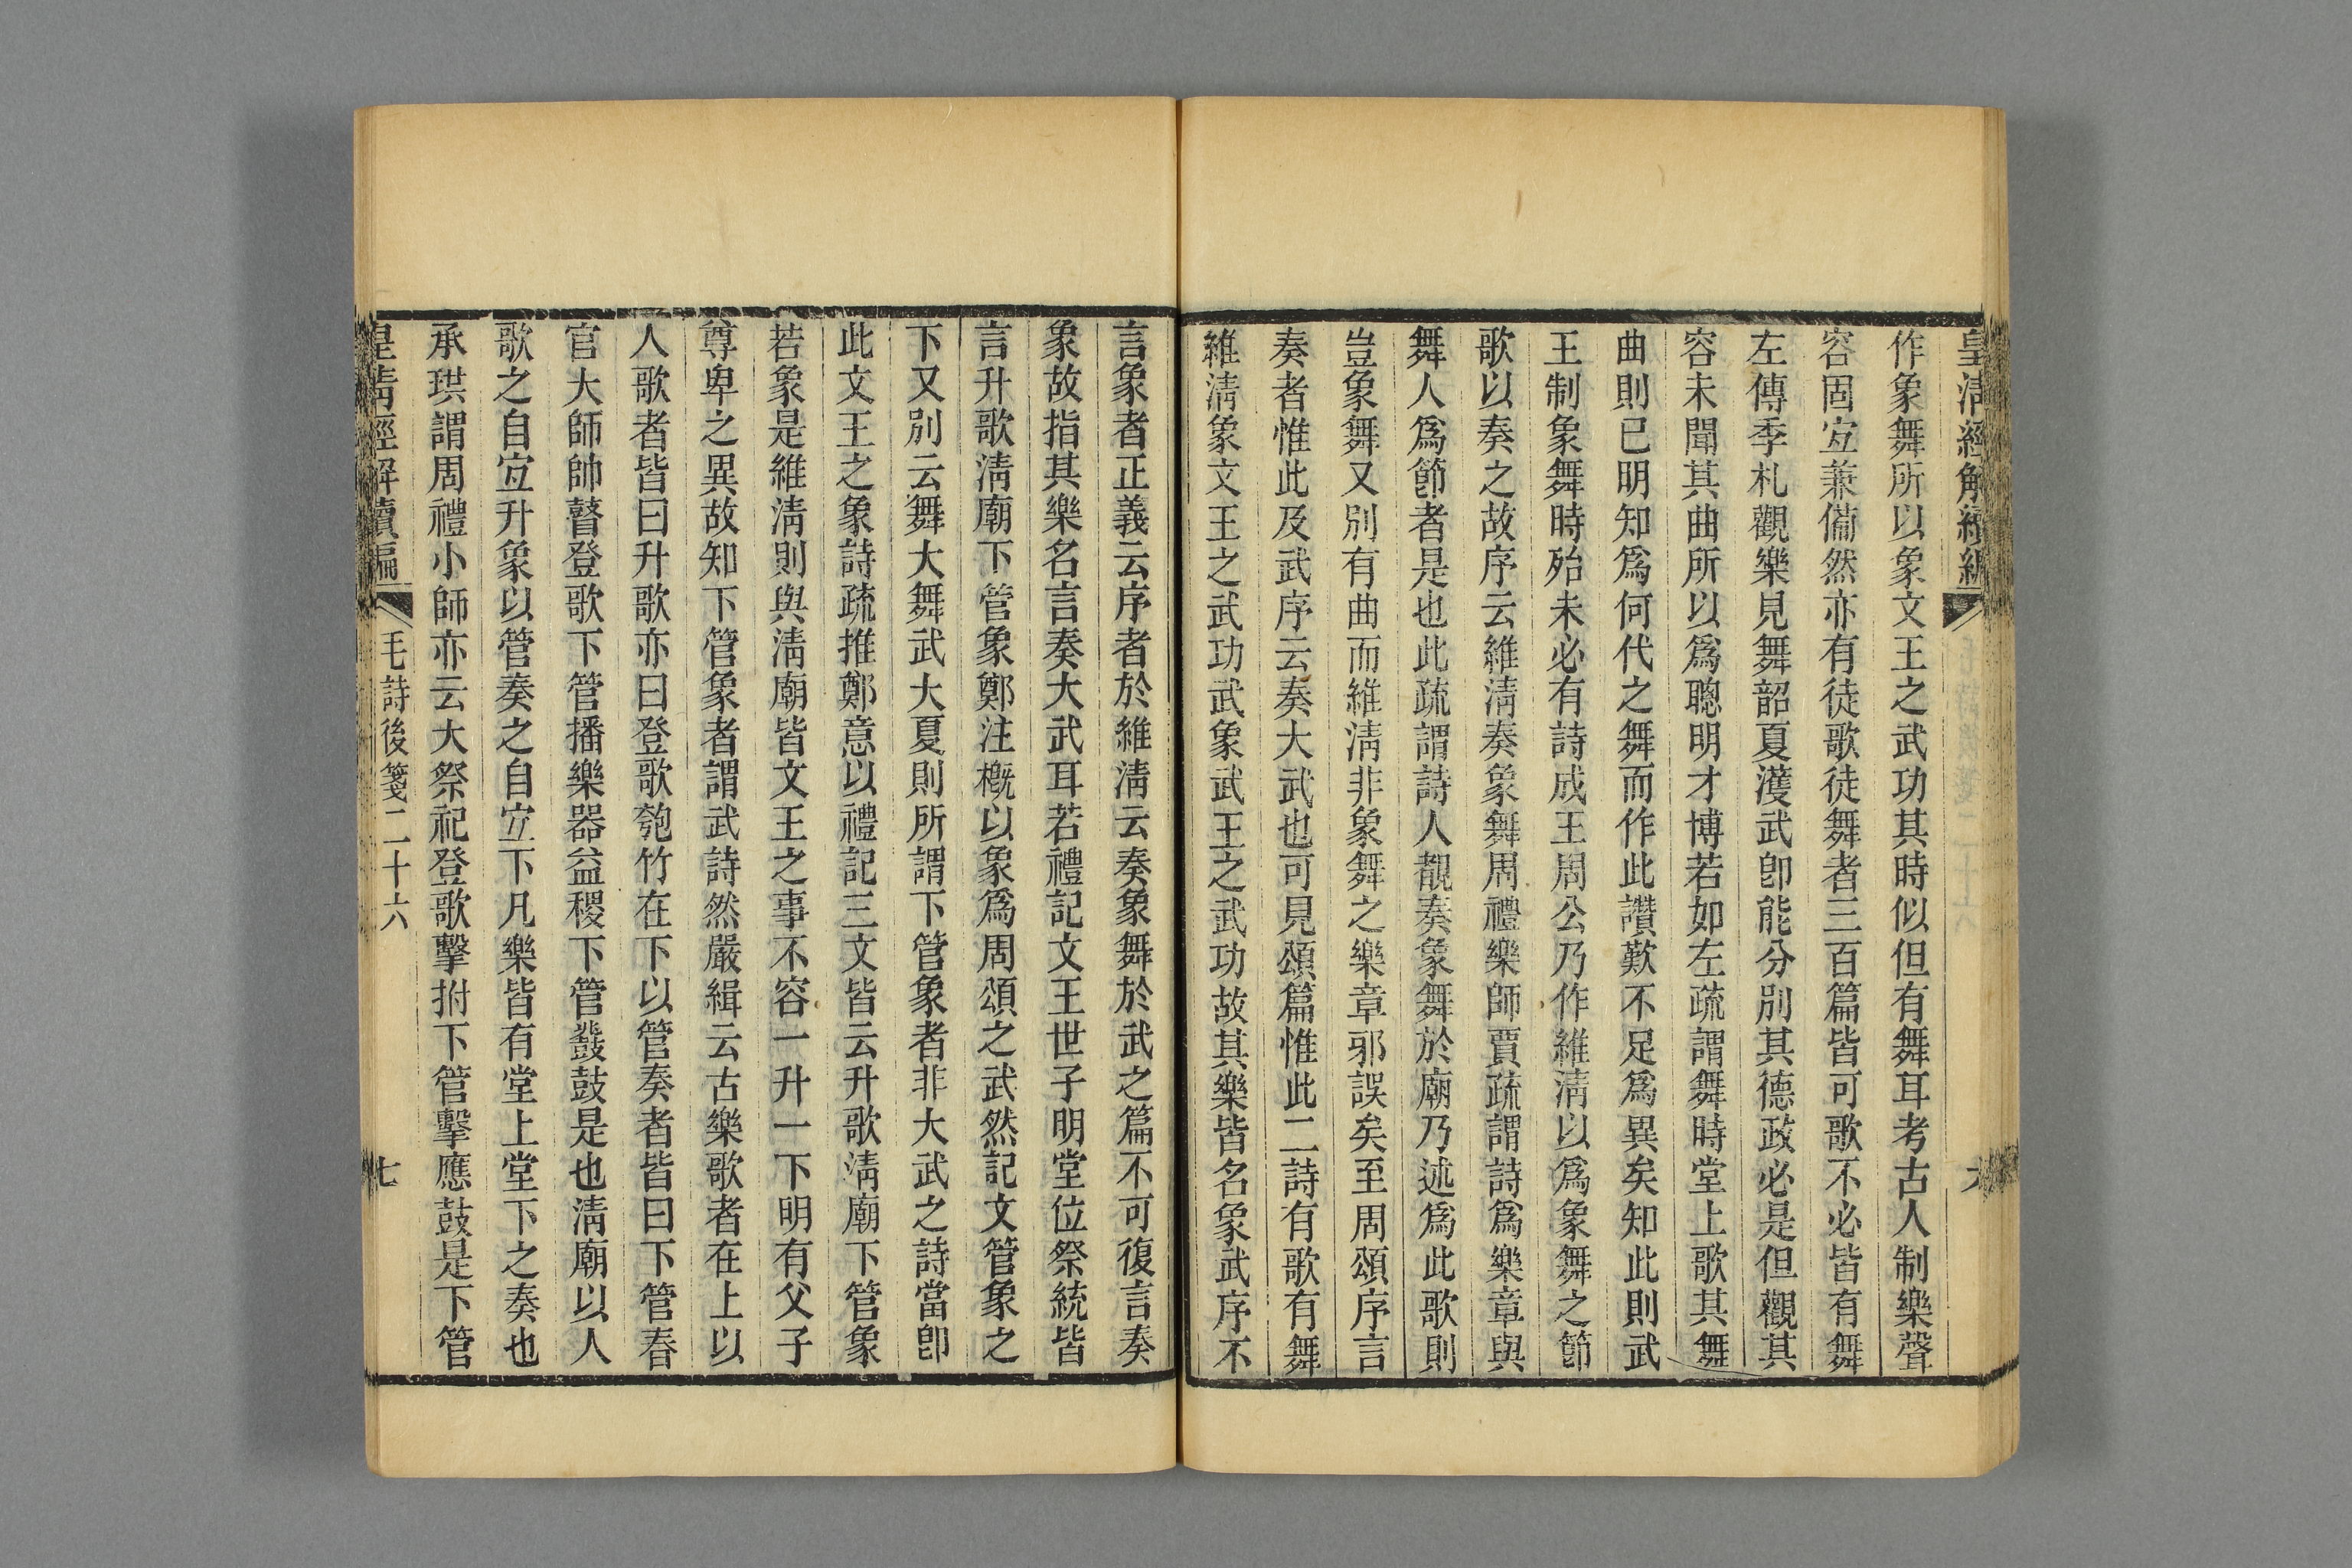 皇清經解續編
作象舞所以象文王之武功其時似但有舞耳考古人制樂聲
容固宐兼備然亦有徒歌徒舞者三百篇皆可歌不必皆有舞
左傳季札觀樂見舞韶夏濩武卽能分別其德政必是但觀其
容未聞其曲所以爲聰明才博若如左疏謂舞時堂上歌其舞
曲則已明知爲何代之舞而作此讚歎不足爲異矣知此則武
王制象舞時殆未必有詩成王周公乃作維淸以爲象舞之節
歌以奏之故序云維淸奏象舞周禮樂師賈疏謂詩爲樂章與
舞人爲節者是也此疏謂詩人覩奏象舞於廟乃述爲此歌則
豈象舞又別有曲而維淸非象舞之樂章邪誤矣至周頌序言
奏者惟此及武序云奏大武也可見頌篇惟此二詩有歌有舞
維淸象文王之武功武象武王之武功故其樂皆名象武序不
言象者正義云序者於維淸云奏象舞於武之篇不可復言奏
象故指其樂名言奏大武耳若禮記文王世子明堂位祭統皆
言升歌淸廟下管象鄭注概以象爲周頌之武然記文管象之
下又別云舞大舞武大夏則所謂下管象者非大武之詩當卽
此文王之象詩疏推鄭意以禮記三文皆云升歌淸廟下管象
若象是維淸則與淸廟皆文王之事不容一升一下明有父子
尊卑之異故知下管象者謂武詩然嚴緝云古樂歌者在上以
人歌者皆曰升歌亦曰登歌匏竹在下以管奏者皆曰下管春
官大師帥瞽登歌下管播樂器益稷下管鼗鼓是也淸廟以人
歌之自宐升象以管奏之自宐下凡樂皆有堂上堂下之奏也
承珙謂周禮小師亦云大祭祀登歌擊拊下管擊應鼓是下管
皇淸經解續編
毛詩後箋二十六
七